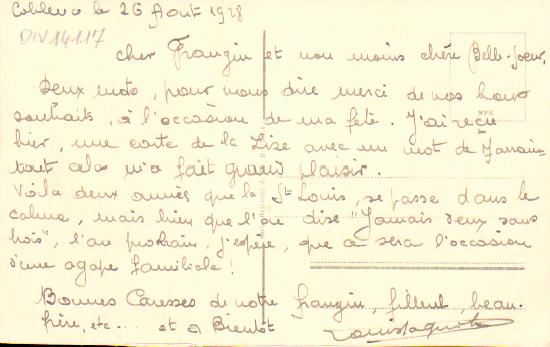 Coblence le 26 Aout 1928
DIV 14117
Cher Frangin et non moins chère Belle-Soeur,
Deux mots, pour vous dire merci de vos bons
souhaits, à l'occasion de ma fête. J'ai reçu
hier, une carte de la Lise avec un mot de
tout cela m'a fait grand plaisir.
Voila deux années que la St Louis, se passe dans le
calme, mais bien que l'on dise "Jamais deux sans
trois", l'an prochain, j'espère, que ce sera l'occasion
d'une agape familiale!
Bonnes Caresses de votre frangin, filleul, beau-
frère, etc... et à Bientôt